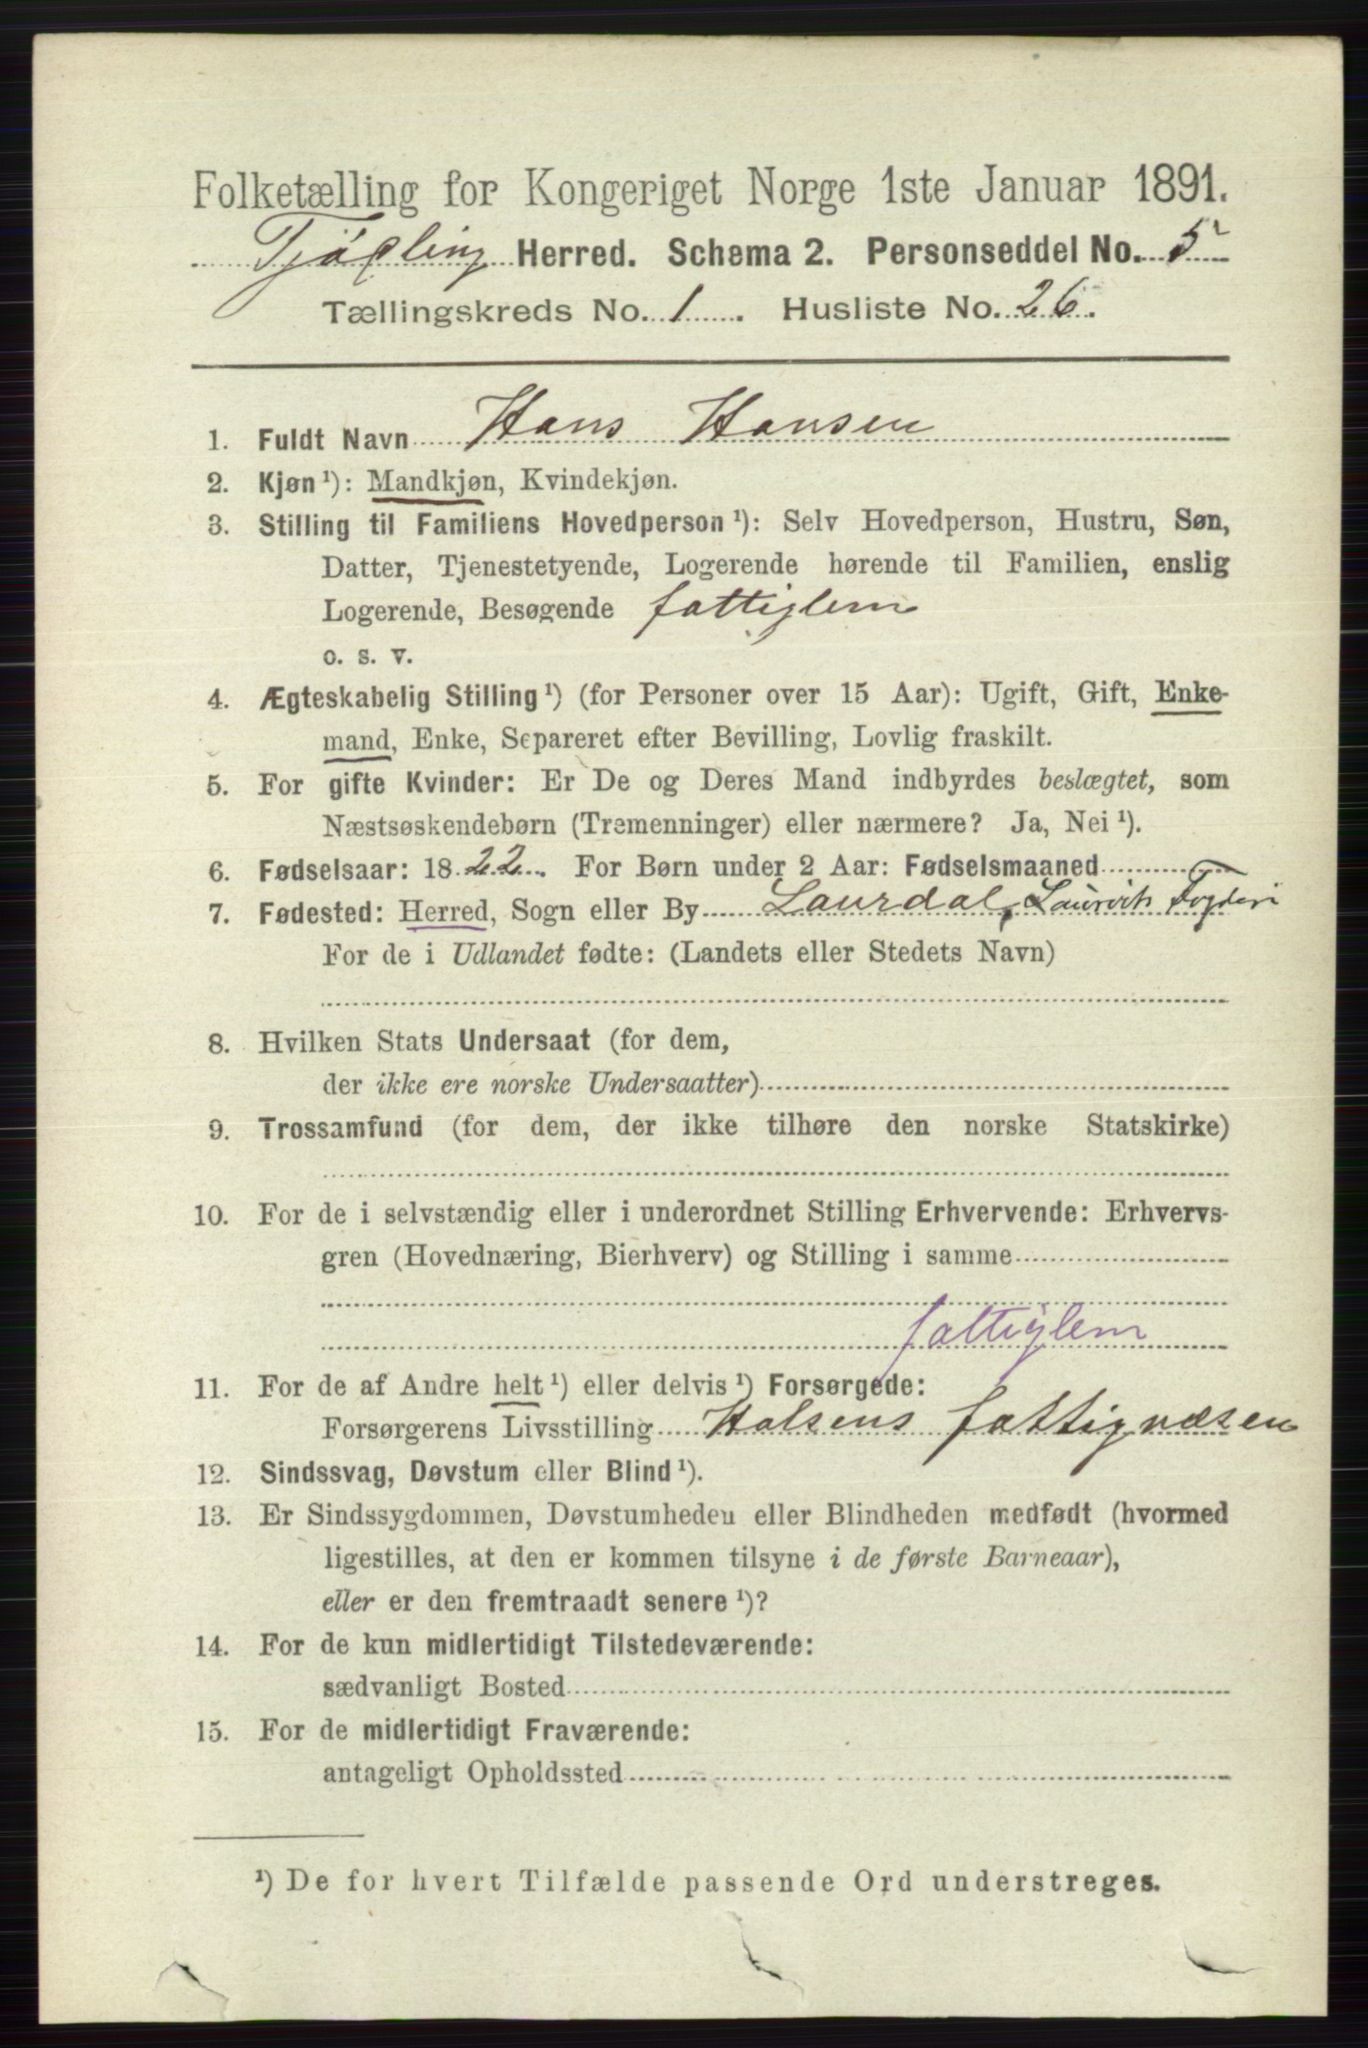 Folketælling for Kongeriget Norge 1ste Januar 1891.
TjøLling Herred. Schema 2. Personseddel No. 5
Tællingskreds No. 1. Husliste No. 26.
1. Fuldt Navn Hans Hansen
2. Kjøn ¹): Mandkjøn, Kvindekjøn.
3. Stilling til Familiens Hovedperson ¹): Selv Hovedperson, Hustru, Søn,
Datter, Tjenestetyende, Logerende hørende til Familien, enslig
Logerende, Besøgende fattiglem
o. s. v.
4. Ægteskabelig Stilling ¹) (for Personer over 15 Aar): Ugift, Gift, Enke-
mand, Enke, Separeret efter Bevilling, Lovlig fraskilt.
5. For gifte Kvinder: Er De og Deres Mand indbyrdes beslægtet, som
Næstsøskendebørn (Tremenninger) eller nærmere? Ja, Nei ¹).
6. Fødselsaar: 1822. For Børn under 2 Aar: Fødselsmaaned
7. Fødested: Herred, Sogn eller By Laurdal, Laurvik Fogderi
For de i Udlandet fødte: (Landets eller Stedets Navn)
8. Hvilken Stats Undersaat (for dem,
der ikke ere norske Undersaatter)
9. Trossamfund (for dem, der ikke tilhøre den norske Statskirke)
10. For de i selvstændig eller i underordnet Stilling Erhvervende: Erhvervs-
gren (Hovednæring, Bierhverv) og Stilling i samme
fattiglem
11. For de af Andre helt ¹) eller delvis ¹) Forsørgede:
Forsørgerens Livsstilling Halsens fattigvæsen
12. Sindssvag, Døvstum eller Blind ¹).
13. Er Sindssygdommen, Døvstumheden eller Blindheden medfødt (hvormed
ligestilles, at den er kommen tilsyne i de første Barneaar),
eller er den fremtraadt senere ¹)?
14. For de kun midlertidigt Tilstedeværende:
sædvanligt Bosted
15. For de midlertidigt Fraværende:
antageligt Opholdssted
¹) De for hvert Tilfælde passende Ord understreges.